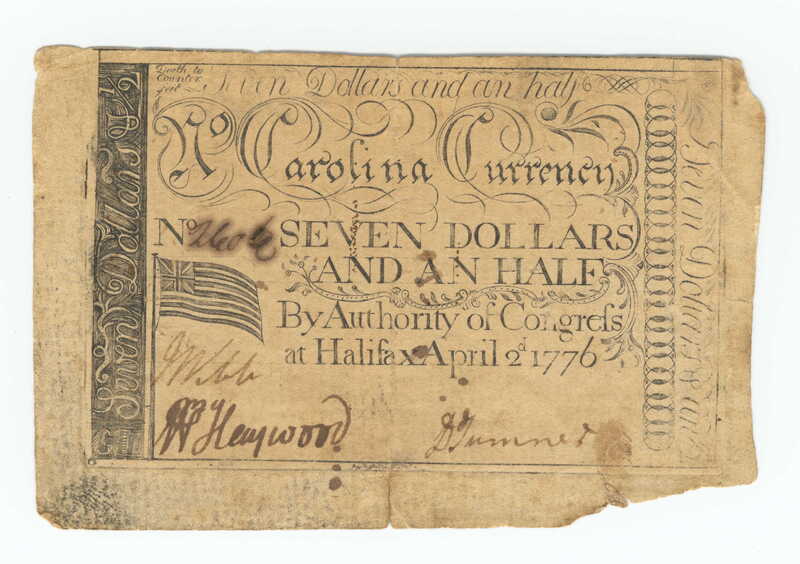 Death to
Counter
feit
Seven Dollars and an half
No Carolina Currency
No
SEVEN DOLLARS
AND AN HALF
By Authority of Congreſs
at Halifax April 2d 1776
J Webb
Wm Haywood
D Sumner
Seven Dollars & 1/2
Seven Dollars & an